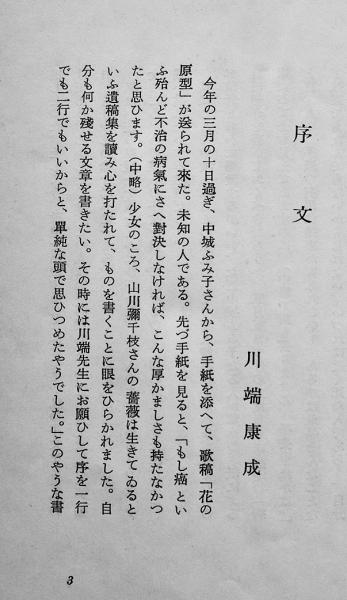 序文
川端康成
今年の三月の十日過ぎ、中城ふみ子さんから、手紙を添へて、歌稿「花の
原型」が送られて來た。未知の人である。先づ手紙を見ると、「もし癌とい
ふ殆んど不治の病氣にさへ對決しなければ、こんな厚かましさも持たなかつ
たと思ひます。（中略）少女のころ、山川彌千枝さんの薔薇は生きてゐると
いふ遺稿集を讀み心を打たれて、ものを書くことに眼をひらかれました。自
分も何か殘せる文章を書きたい。その時には川端先生にお願ひして序を一行
でも二行でもいいからと、單純な頭で思ひつめたやうでした。」このやうな書
3